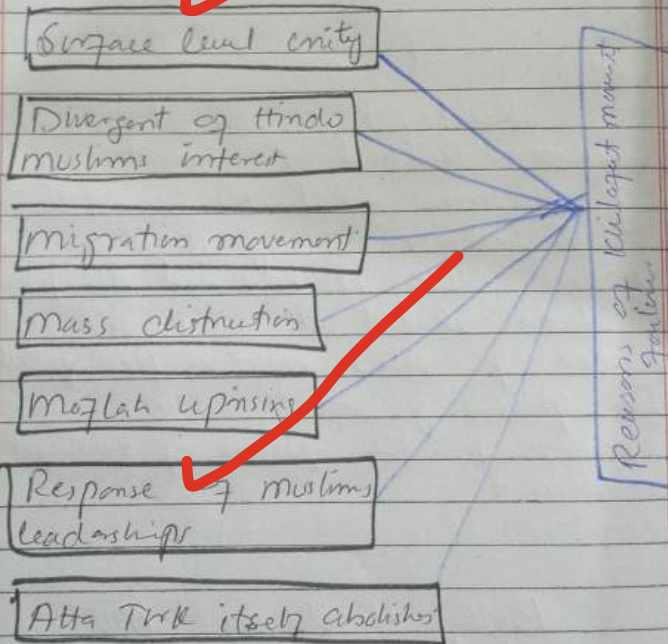 Surface level unity
Divergent of Hindo
muslims interest
migration movement
mass distruction
Moplah uprising
Response of muslims
leadarships
Atta Turk itself abolishes
Reasons of Khilafat movement